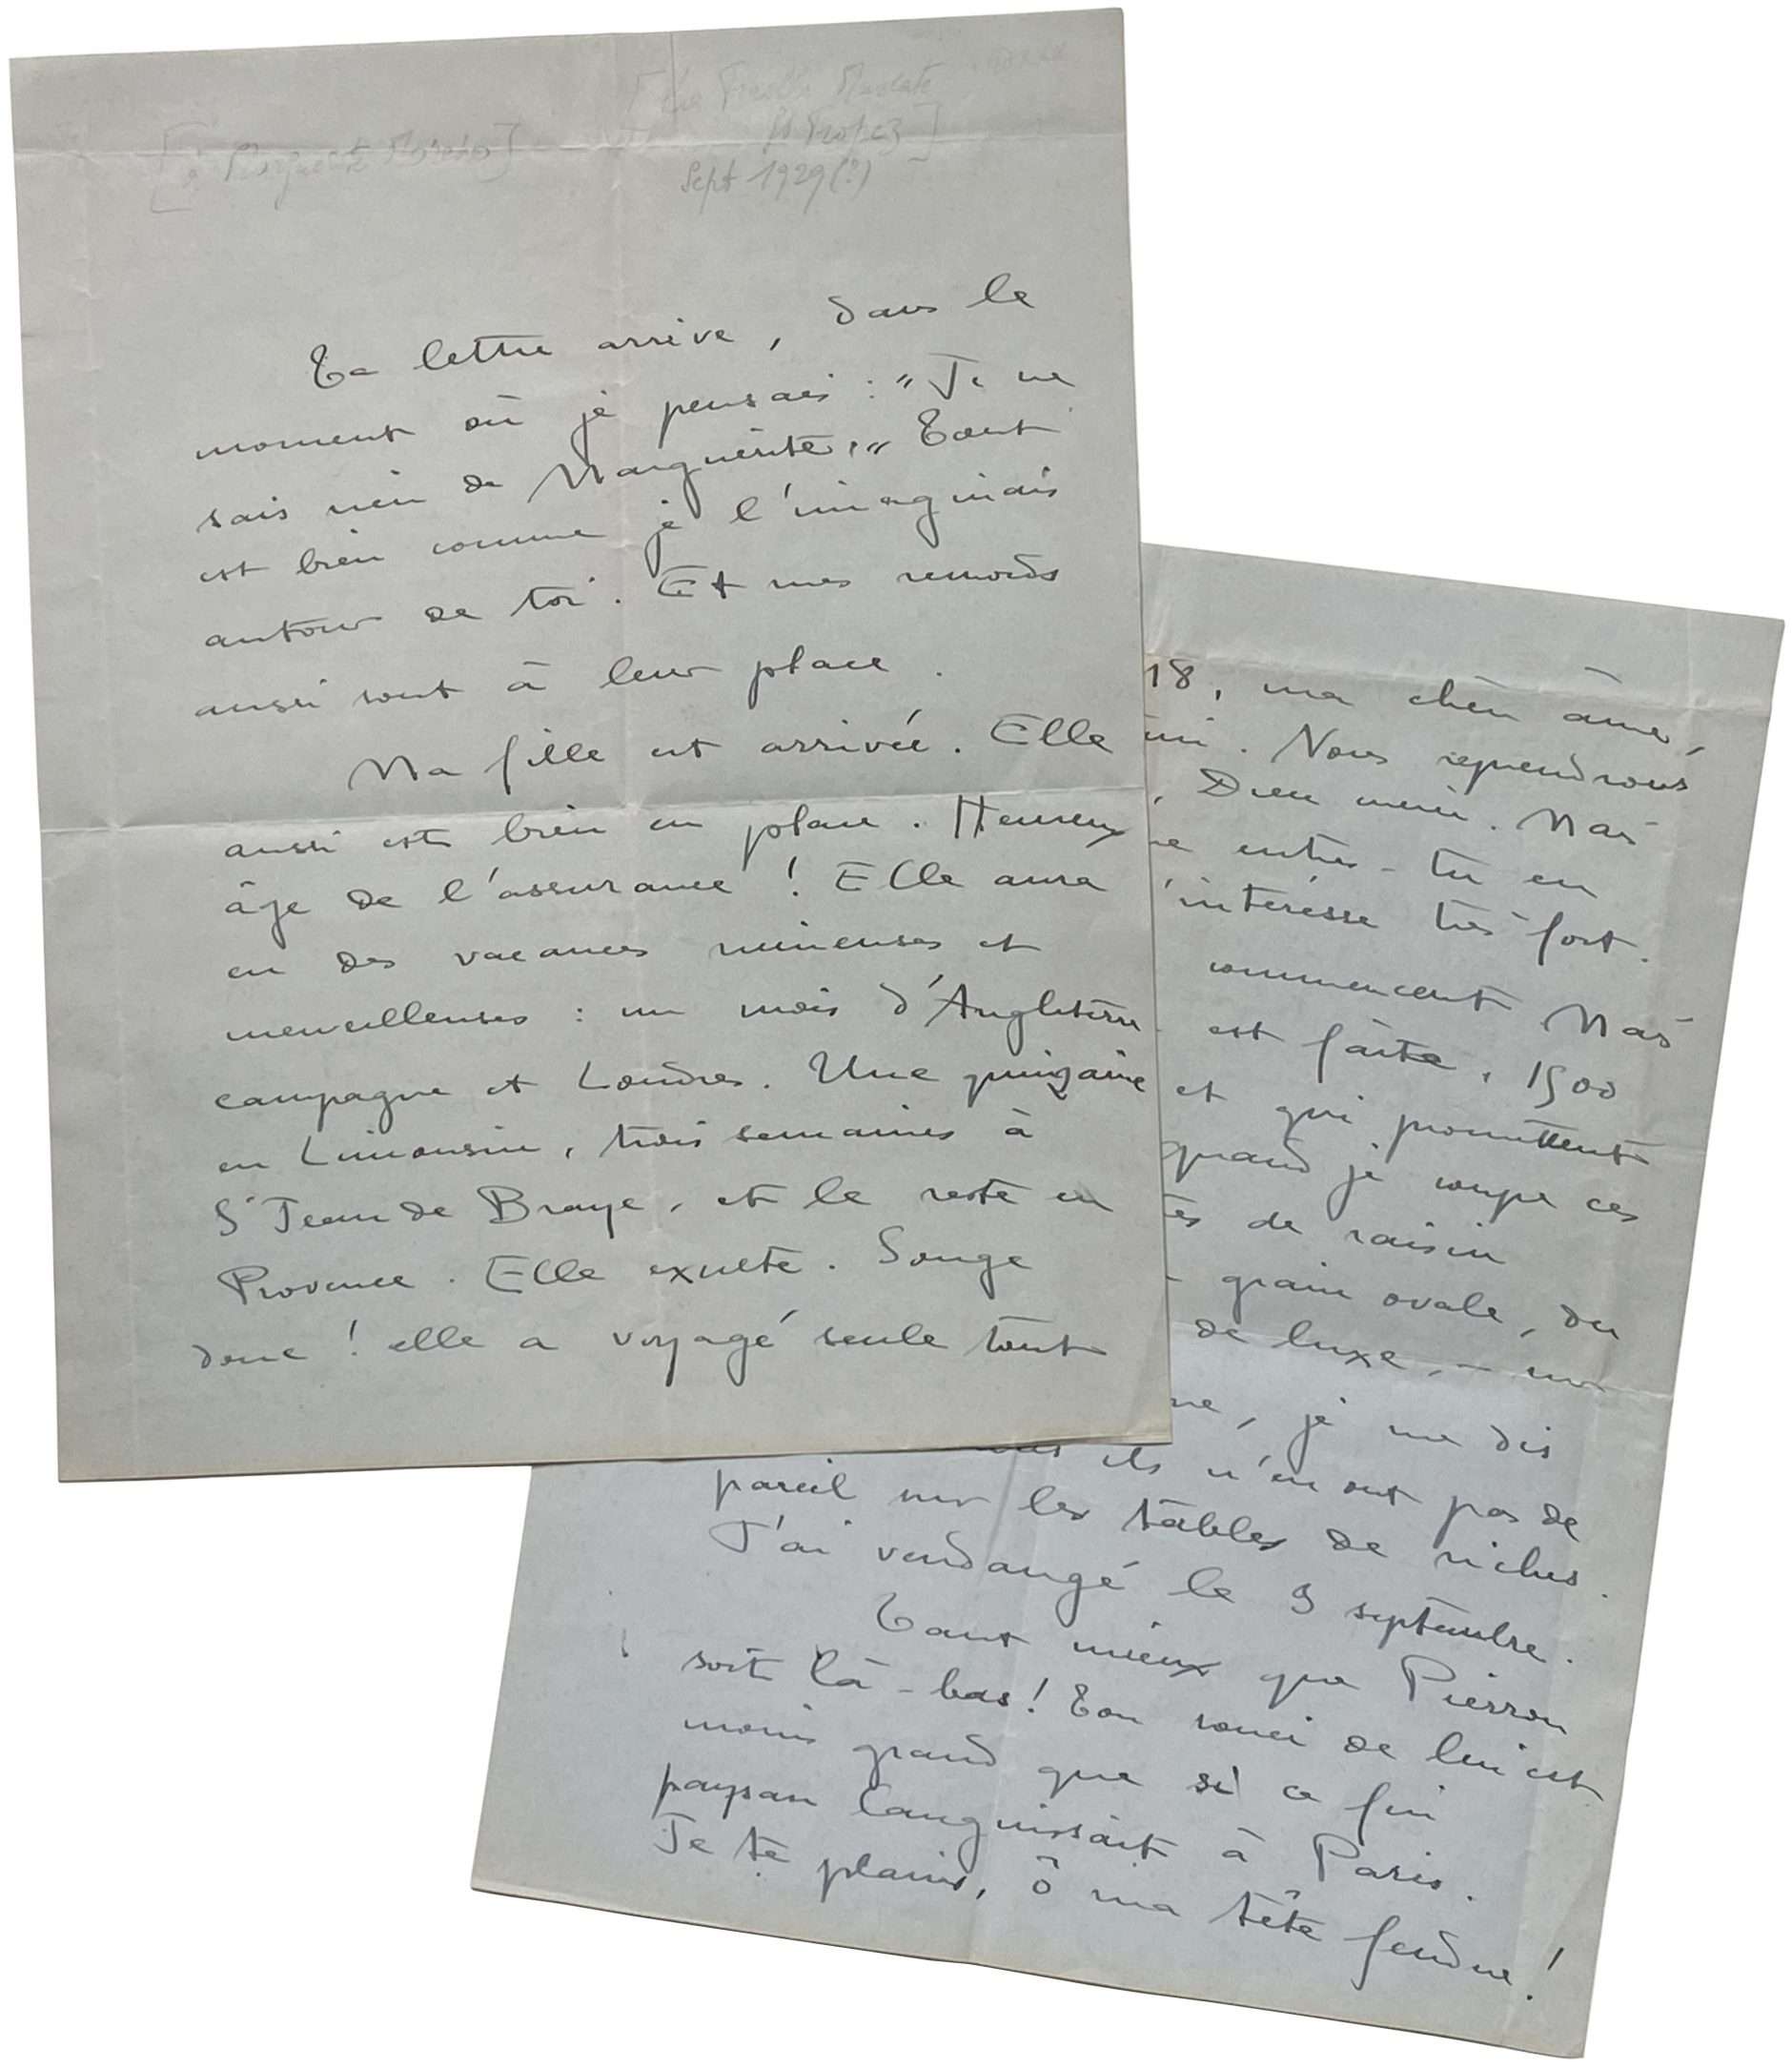 [La Treille Muscate
[à Marguerite Moreno]
St Tropez]
Sept 1929 (?)
Ta lettre arrive, dans le
moment où je pensais : "Je ne
sais rien de Marguerite." Tout
est bien comme je l'imaginais
autour de toi. Et mes remords
aussi sont à leur place.
Ma fille est arrivée. Elle
aussi est bien en place. Heureux
âge de l'assurance ! Elle aura
eu des vacances ruineuses et
merveilleuses : un mois d'Angleterre
campagne et Londres. Une quinzaine
en Limousin, trois semaines à
St Jean de Braye, et le reste en
Provence. Elle exulte. Songe
donc ! elle a voyagé seule tout
18, ma chère âme,
Nous reprendrons
, Dieu merci. Mais
entres-tu en
intéresse très fort.
commencent Mais
est faite, 1500
et qui promettent
quand je coupe ces
de raisin
grain ovale, du
de luxe, – sur
je me dis
ils n'en ont pas de
pareil sur les tables de riches.
J'ai vendangé le 9 septembre.
Tant mieux que Pierre
soit là-bas ! Ton souci de lui est
moins grand que si ce fin
paysan languissait à Paris.
Je te plains, ô ma tête fendue !